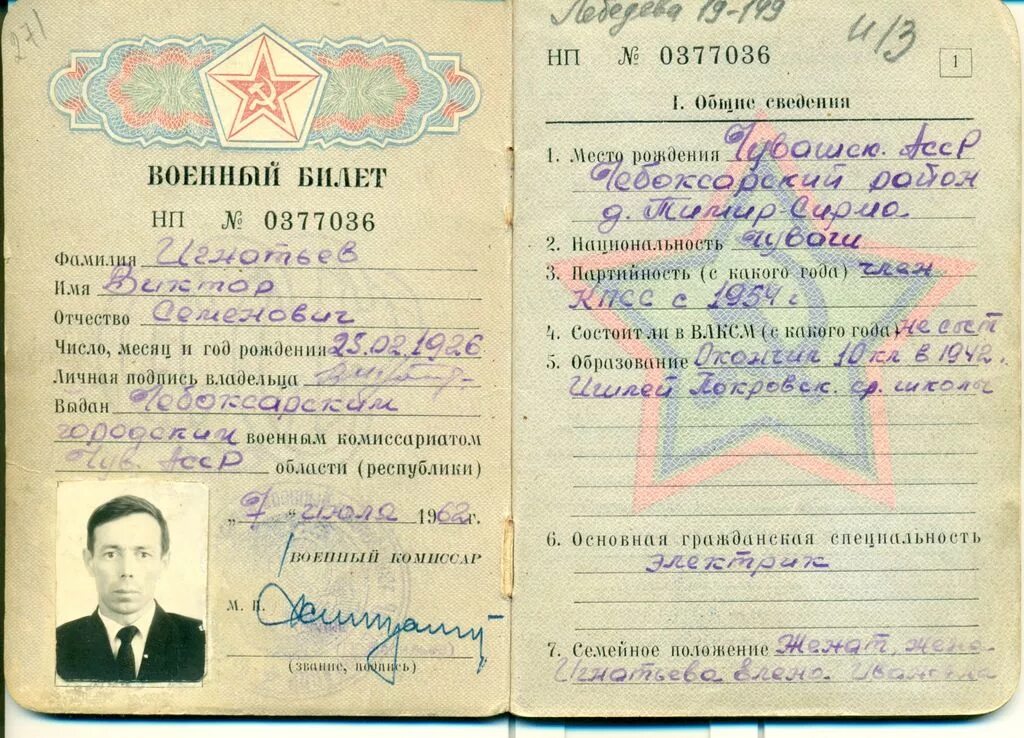 271
ВОЕННЫЙ БИЛЕТ
НП № 0377036
Фамилия Игнатьев
Имя Виктор
Отчество Семенович
Число, месяц и год рождения 25.02.1926
Личная подпись владельца
Выдан Чебоксарским
городским военным комиссариатом
Чув. АССР области (республики)
„7“ июля 1962г.
ВОЕННЫЙ КОМИССАР
М. П.
(звание, подпись)
Лебедева 19-149
И/3
НП № 0377036
1
I. Общие сведения
1. Место рождения Чувашск. АССР
Чебоксарский район
д. Тимир-Сирма
2. Национальность чуваш
3. Партийность (с какого года) член
КПСС с 1954 г
4. Состоит ли в ВЛКСМ (с какого года) не сост
5. Образование Окончил 10 кл в 1942г.
Ишлей Покровск. ср. школы
6. Основная гражданская специальность
электрик
7. Семейное положение Женат, жена
Игнатьева Елена Ивановна